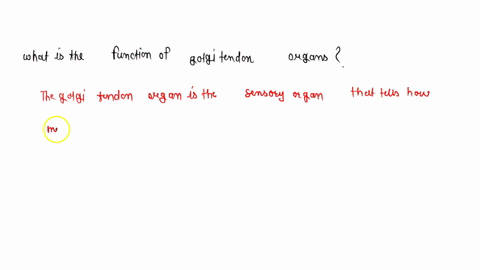 what is the function of golgi tendon organs?
The golgi tendon organ is the sensory organ that tells how
m